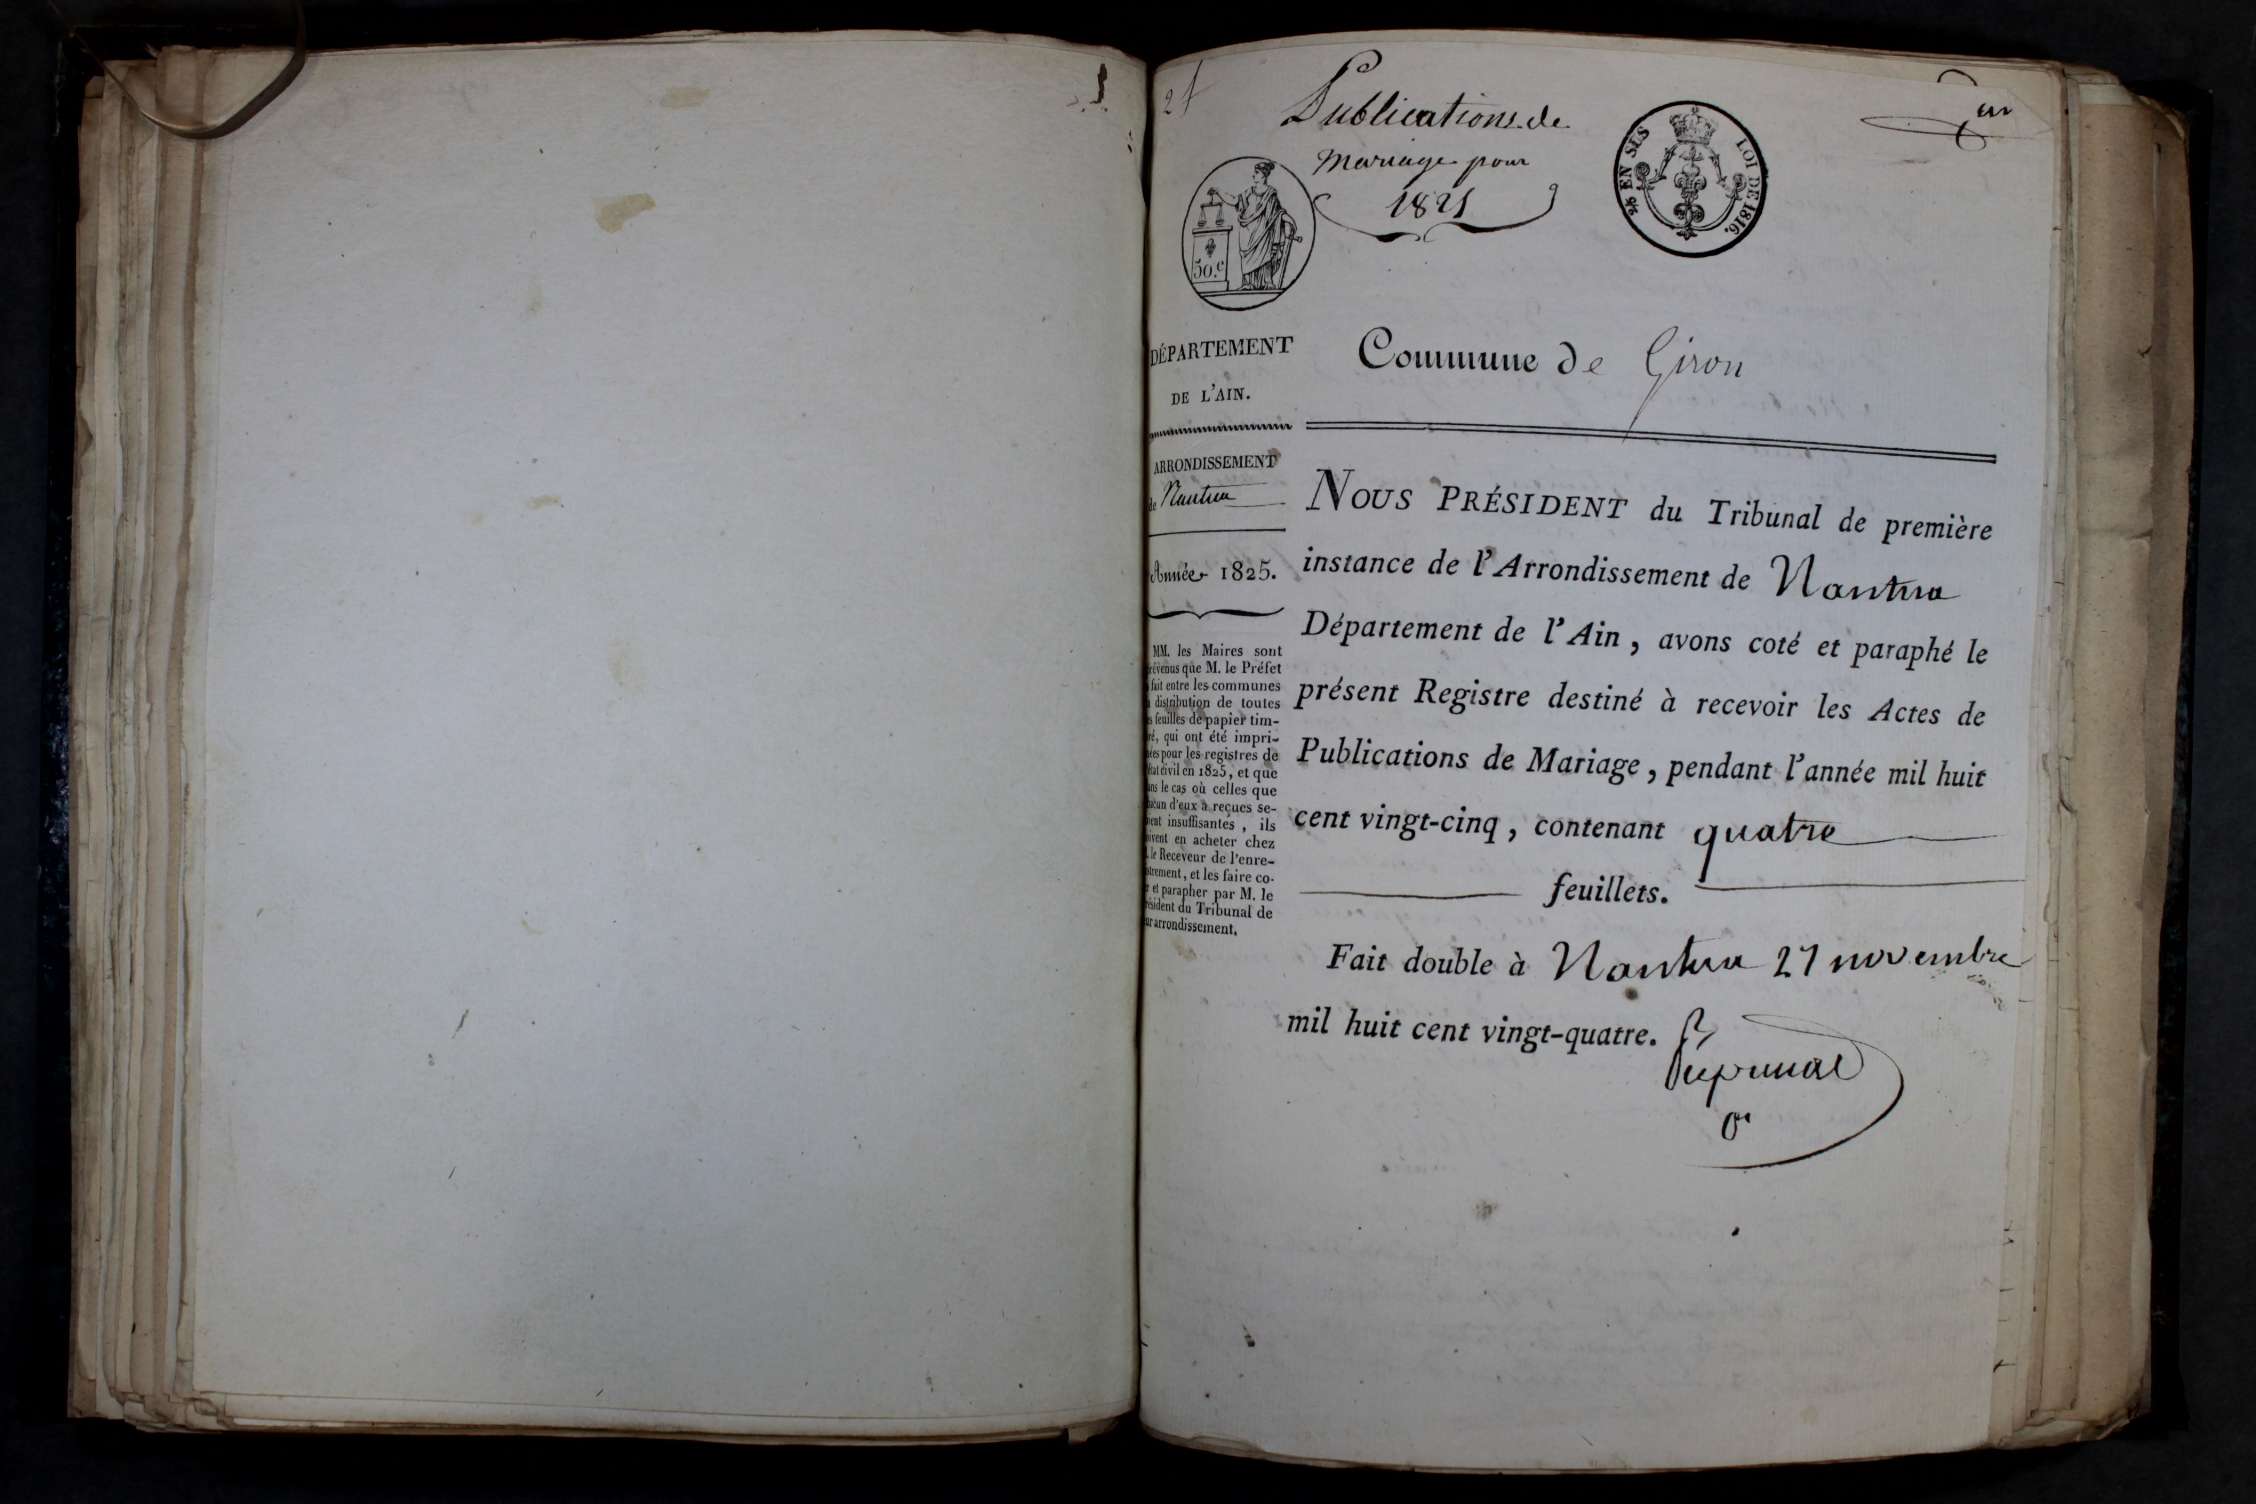 Publications de
mariage pour
1825
un
50.c
2/5 EN SUS
LOI DE 1816.
DÉPARTEMENT
DE L'AIN.
Commune de Giron
ARRONDISSEMENT
de Nantua
Année 1825.
MM. les Maires sont
prévenus que M. le Préfet
fait entre les communes
distribution de toutes
feuilles de papier tim-
bré, qui ont été impri-
mées pour les registres de
état civil en 1825, et que
dans le cas où celles que
chacun d'eux a reçues se-
roient insuffisantes, ils
doivent en acheter chez
le Receveur de l'enre-
gistrement, et les faire co-
ter et parapher par M. le
Président du Tribunal de
leur arrondissement.
NOUS PRÉSIDENT du Tribunal de première
instance de l'Arrondissement de Nantua
Département de l'Ain, avons coté et paraphé le
présent Registre destiné à recevoir les Actes de
Publications de Mariage, pendant l'année mil huit
cent vingt-cinq, contenant quatre
feuillets.
Fait double à Nantua 27 novembre
mil huit cent vingt-quatre.